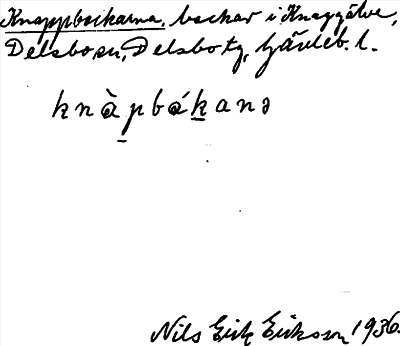 Knappbackarna, backar i Knaggälve,
Delsbo sn, Delsbo tg, Gävleb. l.
knàpbákanə
Nils Erik Eriksson 1936.